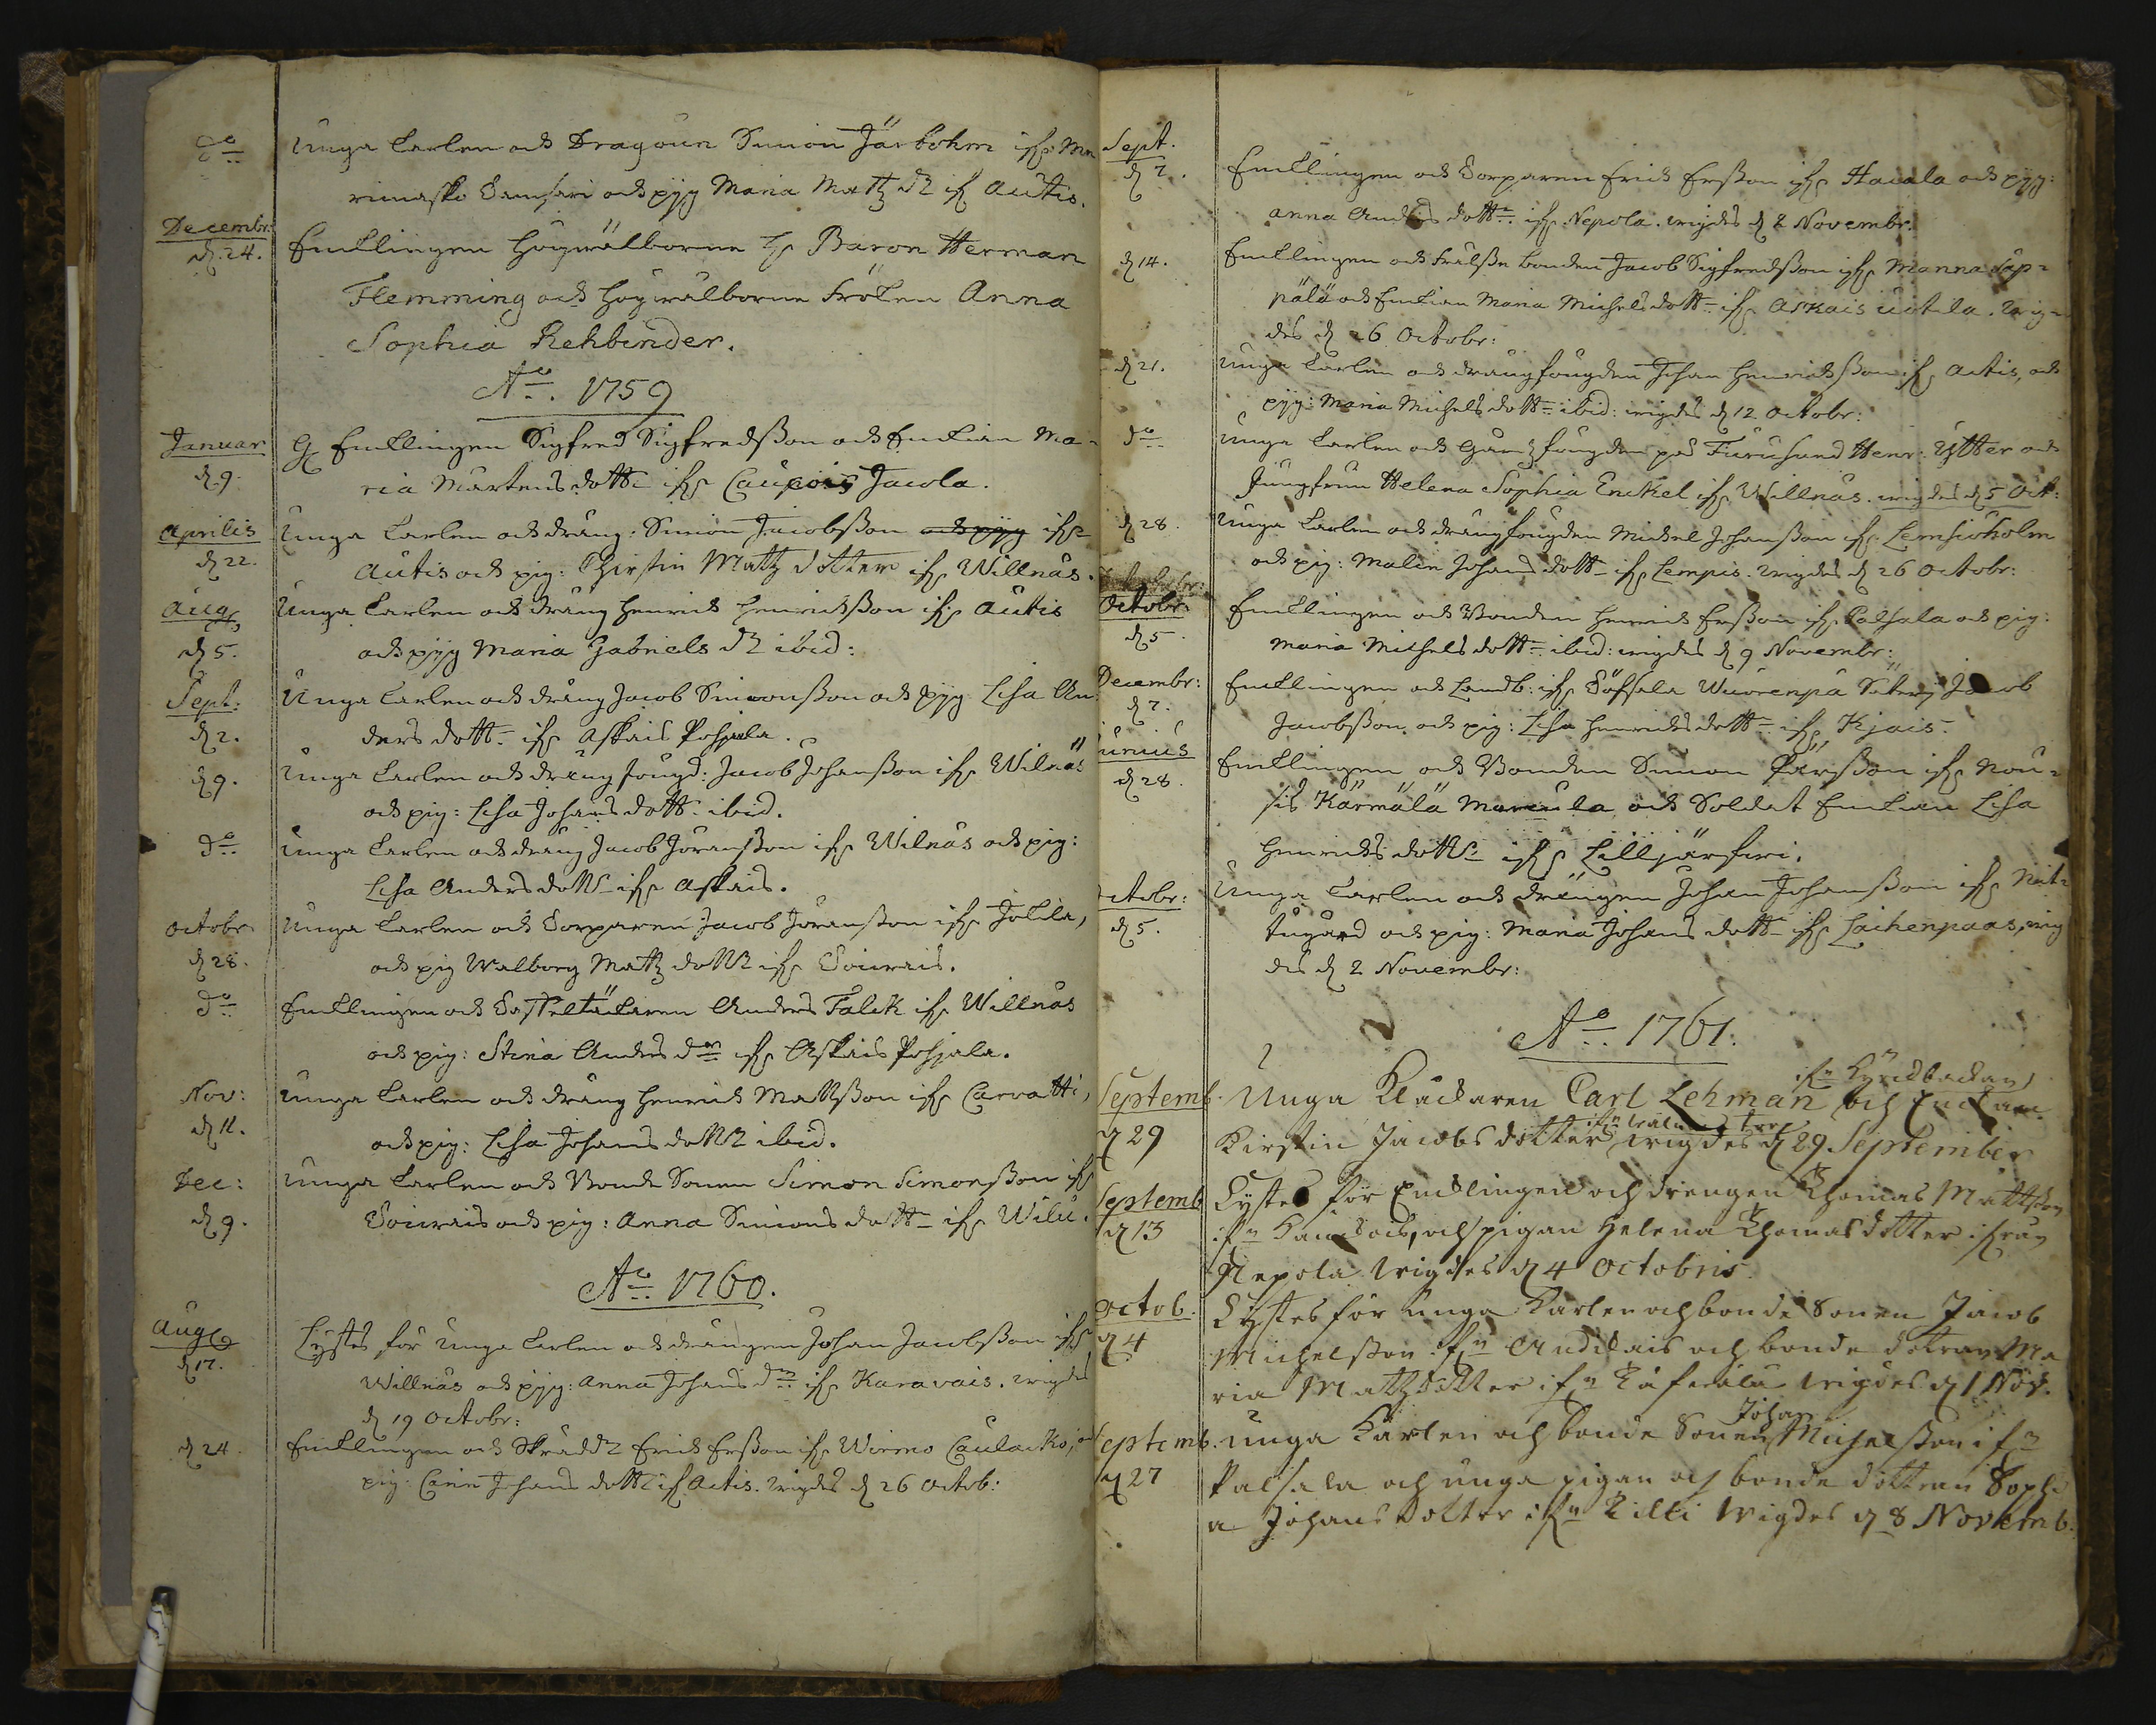 Do Unga Carlen och Dragoun Simon Järbohm ifr: Mu
rimasko Samsari och pijg Maria Matz dr ifr Autis.
Decembr:
d. 24. Enklingen Högwälborne Hr Baron Herman
Flemming och Högwälborne Fröken Anna
Sophia Rehbinder.
Ao. 1759
Januar G Enklingen Sigfred Sigfredsson och Enkian Ma-
d. 9. ria Mårtens dottr ifr Caupois Jacola.
Aprilis Unga Carlen och dräng: Simon Jacobsson och pijg ifr
d 22. Autis och pig: Chirstin Matz dotter ifr Willnäs.
Aug Unga Carlen och dräng Henrich Henrichsson ifr Autis
d 5. och pijg Maria Gabriels dr ibid:
Sept: Unga Carlen och dräng Jacob Simonsson och pijg Lisa An-
d 2. ders dottr ifr Askais Pohjala.
d 9. Unga Carlen och dräng fougd: Jacob Johansson ifr Wilnäs
och pig: Lisa Johans dottr ibid.
Do Unga Carlen och dräng Jacob Jöransson ifr Wilnäs och pig:
Lisa Anders dottr ifr Askais.
Octobr Unga Carlen och Torparen Jacob Jöransson ifr Jokila,
d 28. och pig Walborg Matz dottr ifr Toivais.
Do Enklingen och Anders Falck ifr Willnäs
och pig: Stina Anders dr ifr Askais Pohjala.
Nov: Unga Carlen och dräng Henrich Mattsson ifr Carvatti,
d 11. och pig: Lisa Johans dottr ibid.
Dec: Unga Carlen och Bonde Sonen Simon Simonsson ifr
d 9. Toivais och pig: Anna Simons dottr ifr Wilu.
Ao. 1760.
Aug Lystes för Unga Carlen och drängen Johan Jacobsson ifr
d 17. Willnäs och pijg: Anna Johans dr ifr Karavais. wigdes
d 19 Octobr:
d 24. Enklingen och Skräddr Erich Ersson ifr Wirmo Caulacko, och
pig: Carin Johans dottr ifr Autis. wigdes d 26 Octob:
Sept.
d 7. Enklingen och Torparen Erich Ersson ifr Hacala och pijg:
Anna Anders dottr ifr Nepola. wigdes d 2 Novembr.
d 14. Enklingen och Frälsse bonden Jacob Sigfredsson ifr Manna Säp-
pälä och Enkian Maria Michels dottr ifr Askais uotila. wig-
des d 26 Octobr:
d 21. Unga Carlen och drängfougden Johan Henrichsson ifr Autis, och
pijg: Maria Michels dottr ibid: wigdes d 12 Octobr:
Do Unga Carlen och fougden på Furusund Henr: Ytter och
Jungfrun Helena Sophia Enckel ifr Willnäs. wigdes d 5 Oct:
d 28. Unga Carlen och drängfougden Michel Johansson ifr Lemsioholm
och pig: Malin Johans dottr ifr Lempis. wigdes d 26 Octobr:
Octobr: Enklingen och Bonden Henrich Ersson ifr Palsala och pig:
d 5. Maria Michels dottr ibid: wigdes d 9 Novembr:
Decembr: Enklingen och Landb: ifr Söfsala Wuorenpä Säterj Jacob
d 7. Jacobsson och pig: Lisa Henrichs dottr ifr Kjais.
Junius
d 28. Enklingen och Bonden Simon Pärsson ifr Nou-
sis Kärmälä Marcula, och Soldat Enkian Lisa
Henrichs dottr ifr Lilljärfwi.
Octobr: Unga Carlen och drängen Johan Johansson ifr Nät-
d 5. tugård och pig: Maria Johans dottr ifr Laihenpaas, wig
des d 2 Novembr:
Ao. 1761.
ifrn Kyrckbackan
Septemb. Unga Klåckaren Carl Lehman och Enckan
d 29 Kirstin Jacobs dotter wigdes d 29 September
Septemb Lystes för Encklingen och drengen Thomas Mattsson
d 13 ifrn, och pigan Helena Thomas dotter ifrån
Nepola wigdes d 4 Octobris.
Octob. Lystes för unga Karlen och bonde Sonen Jacob
d 4 Michelsson ifrn Audilais och bonde dotran Ma
ria Matzdotter ifrn wigdes d 1 Nov.
Johan
Septemb. unga Karlen och bonde Sonen Michelsson ifrn
d 27 Palsala och unga pigan och bonde dottran Sophi
a Johans dotter ifrn Killi wigdes d 8 Novemb.